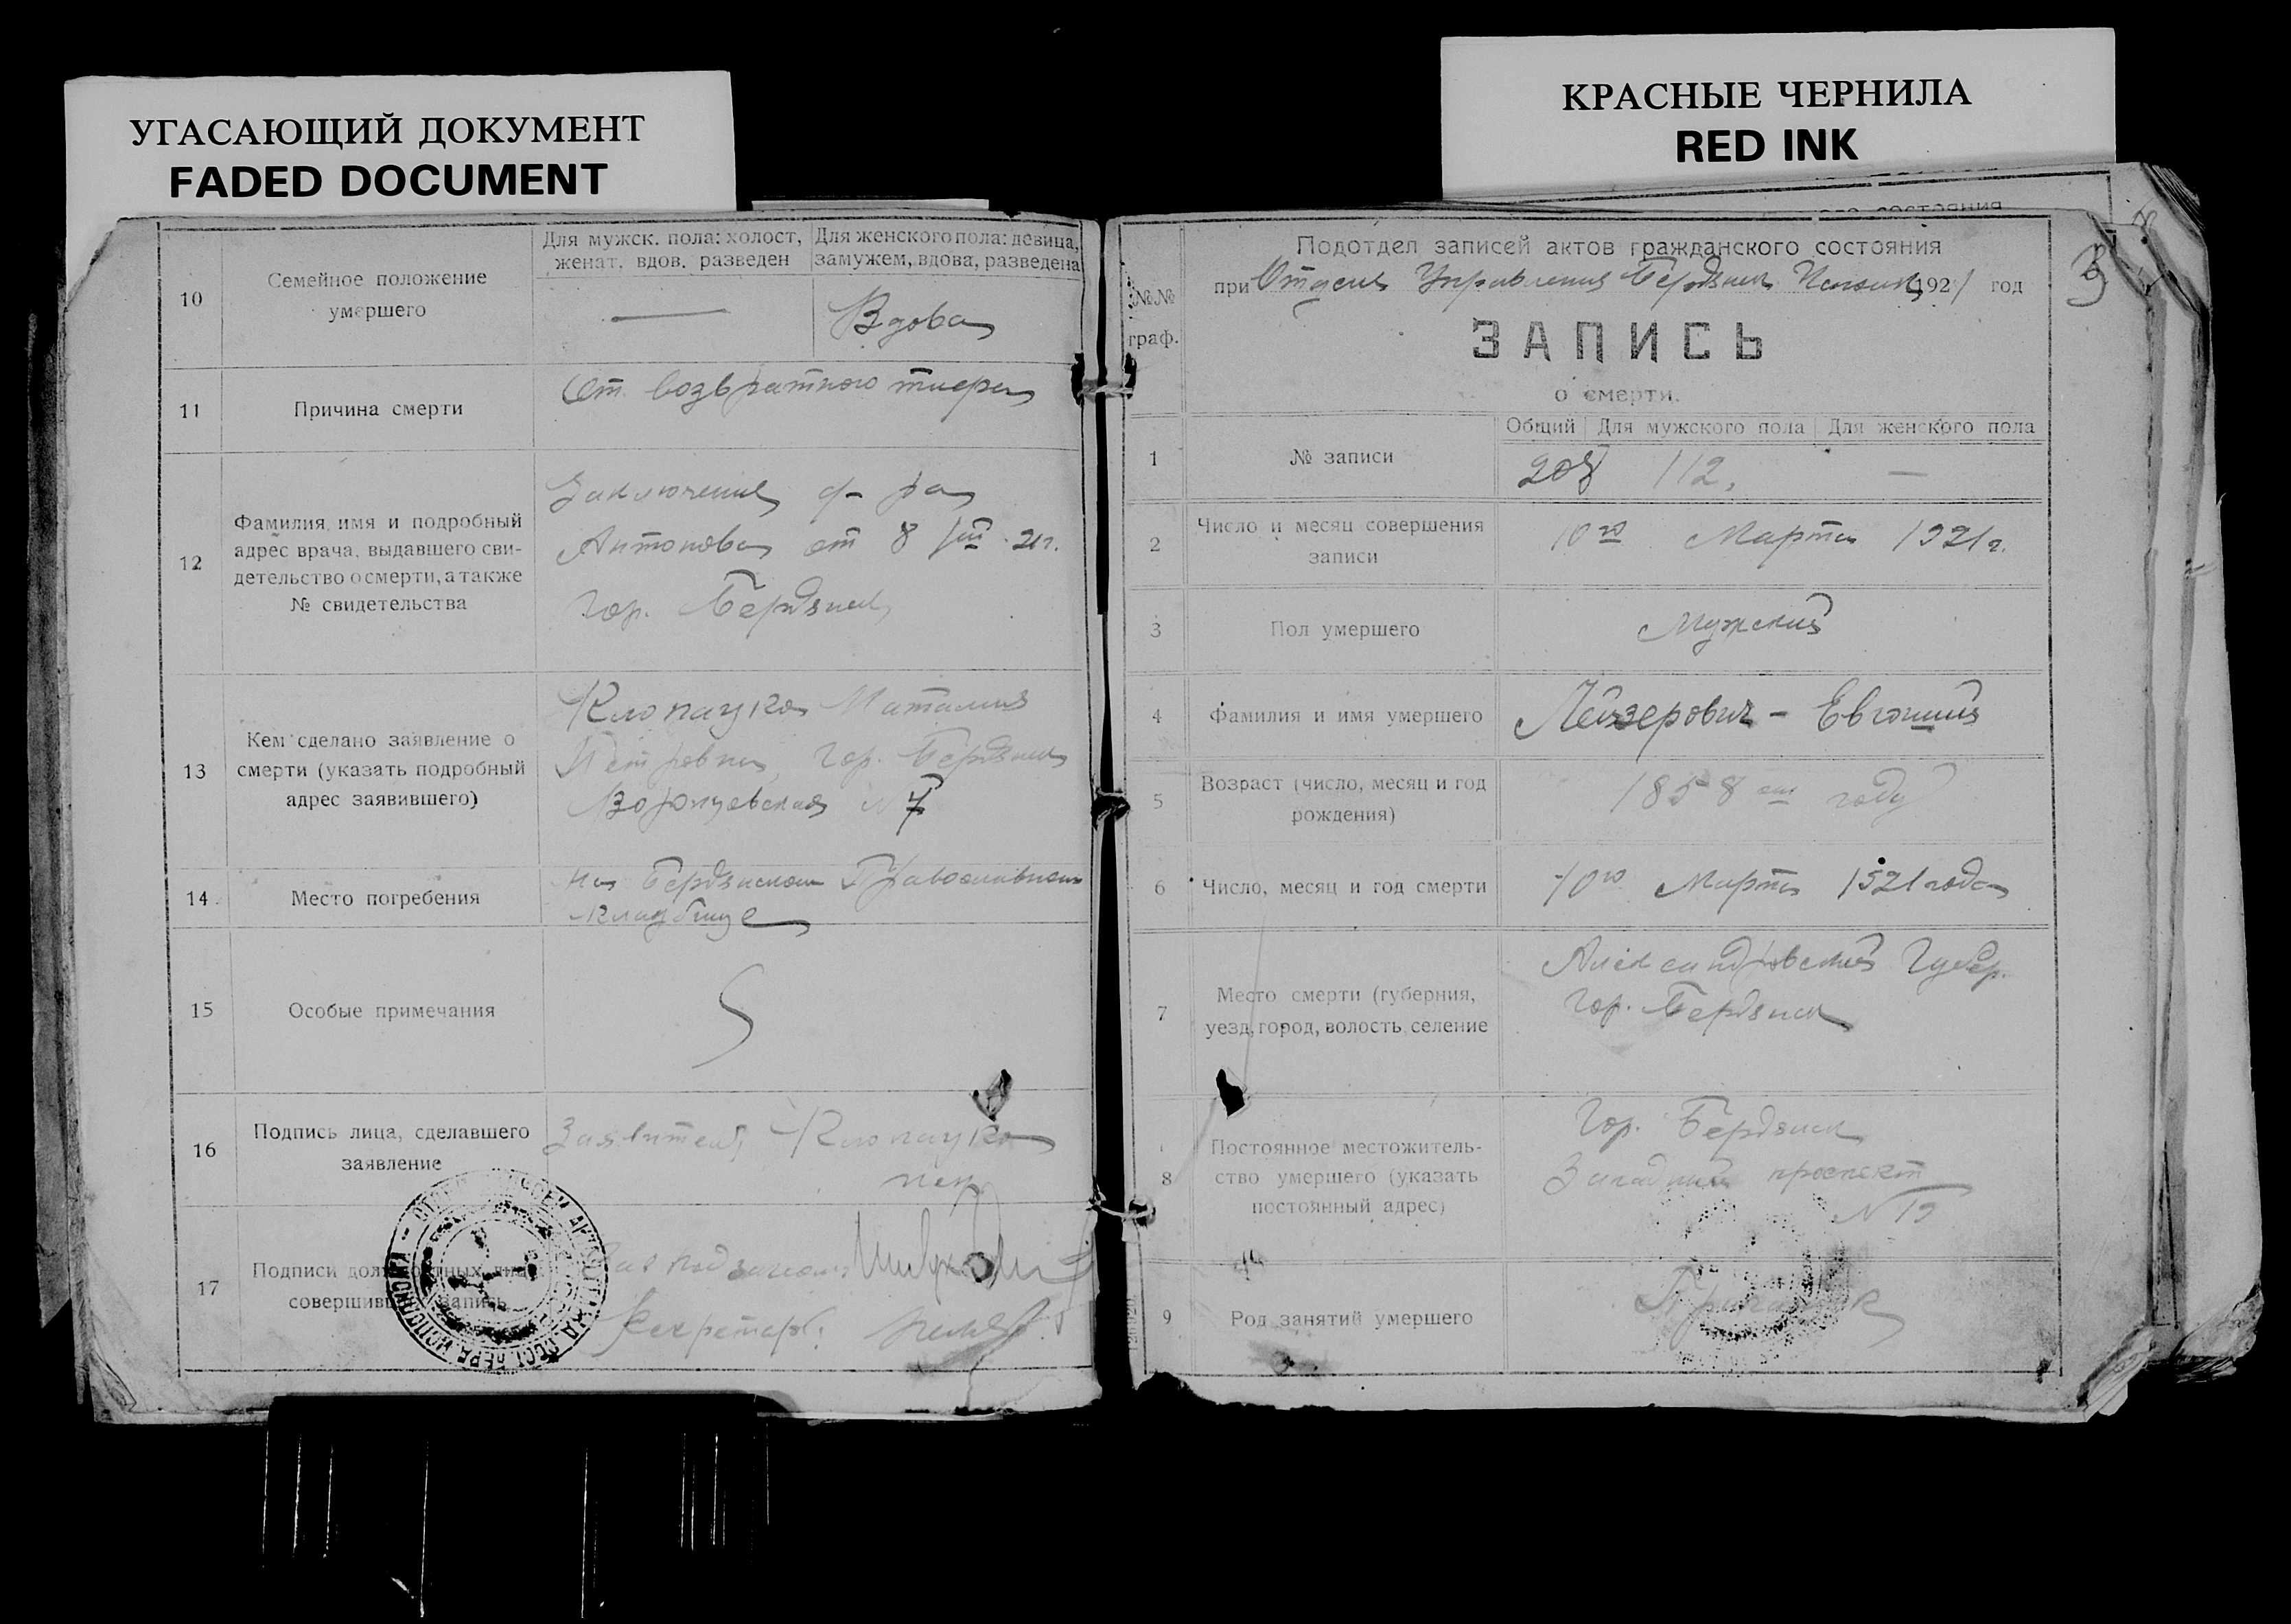 УГАСАЮЩИЙ ДОКУМЕНТ
FADED DOCUMENT
КРАСНЫЕ ЧЕРНИЛА
RED INK
10
Семейное положение
умершего
Для мужск. пола: холост,
женат, вдов, разведен
Для женского пола: девица,
замужем, вдова, разведена
Вдова
11
Причина смерти
От возвратного тифа
12
Фамилия, имя и подробный
адрес врача, выдавшего сви-
детельство о смерти, а также
№ свидетельства
Заключение д-ра
Антонова от 8/III 21г.
Гор. Бердянск
13
Кем сделано заявление о
смерти (указать подробный
адрес заявившего)
Наталия
Петровна, Гор. Бердянск
Воронцовская №
14
Место погребения
На Бердянском Православном
кладбище
15
Особые примечания
16
Подпись лица, сделавшего
заявление
Заявитель
17
Подписи должностных лиц,
совершивших запись
Секретарь:
№№
граф.
Подотдел записей актов гражданского состояния
при Отделе Управления Бердянск 1921 год
ЗАПИСЬ
о смерти.
3
1
№ записи
Общий
Для мужского пола
Для женского пола
208
112,
—
2
Число и месяц совершения
записи
10го Марта 1921г.
3
Пол умершего
Мужский
4
Фамилия и имя умершего
Лейзерович - Евгений
5
Возраст (число, месяц и год
рождения)
1858 ом году
6
Число, месяц и год смерти
10го Марта 1921 года
7
Место смерти (губерния,
уезд, город, волость, селение
Александровской Губер.
гор. Бердянск
8
Постоянное местожитель-
ство умершего (указать
постоянный адрес)
Гор. Бердянск
Западный проспект
№ 19
9
Род занятий умершего